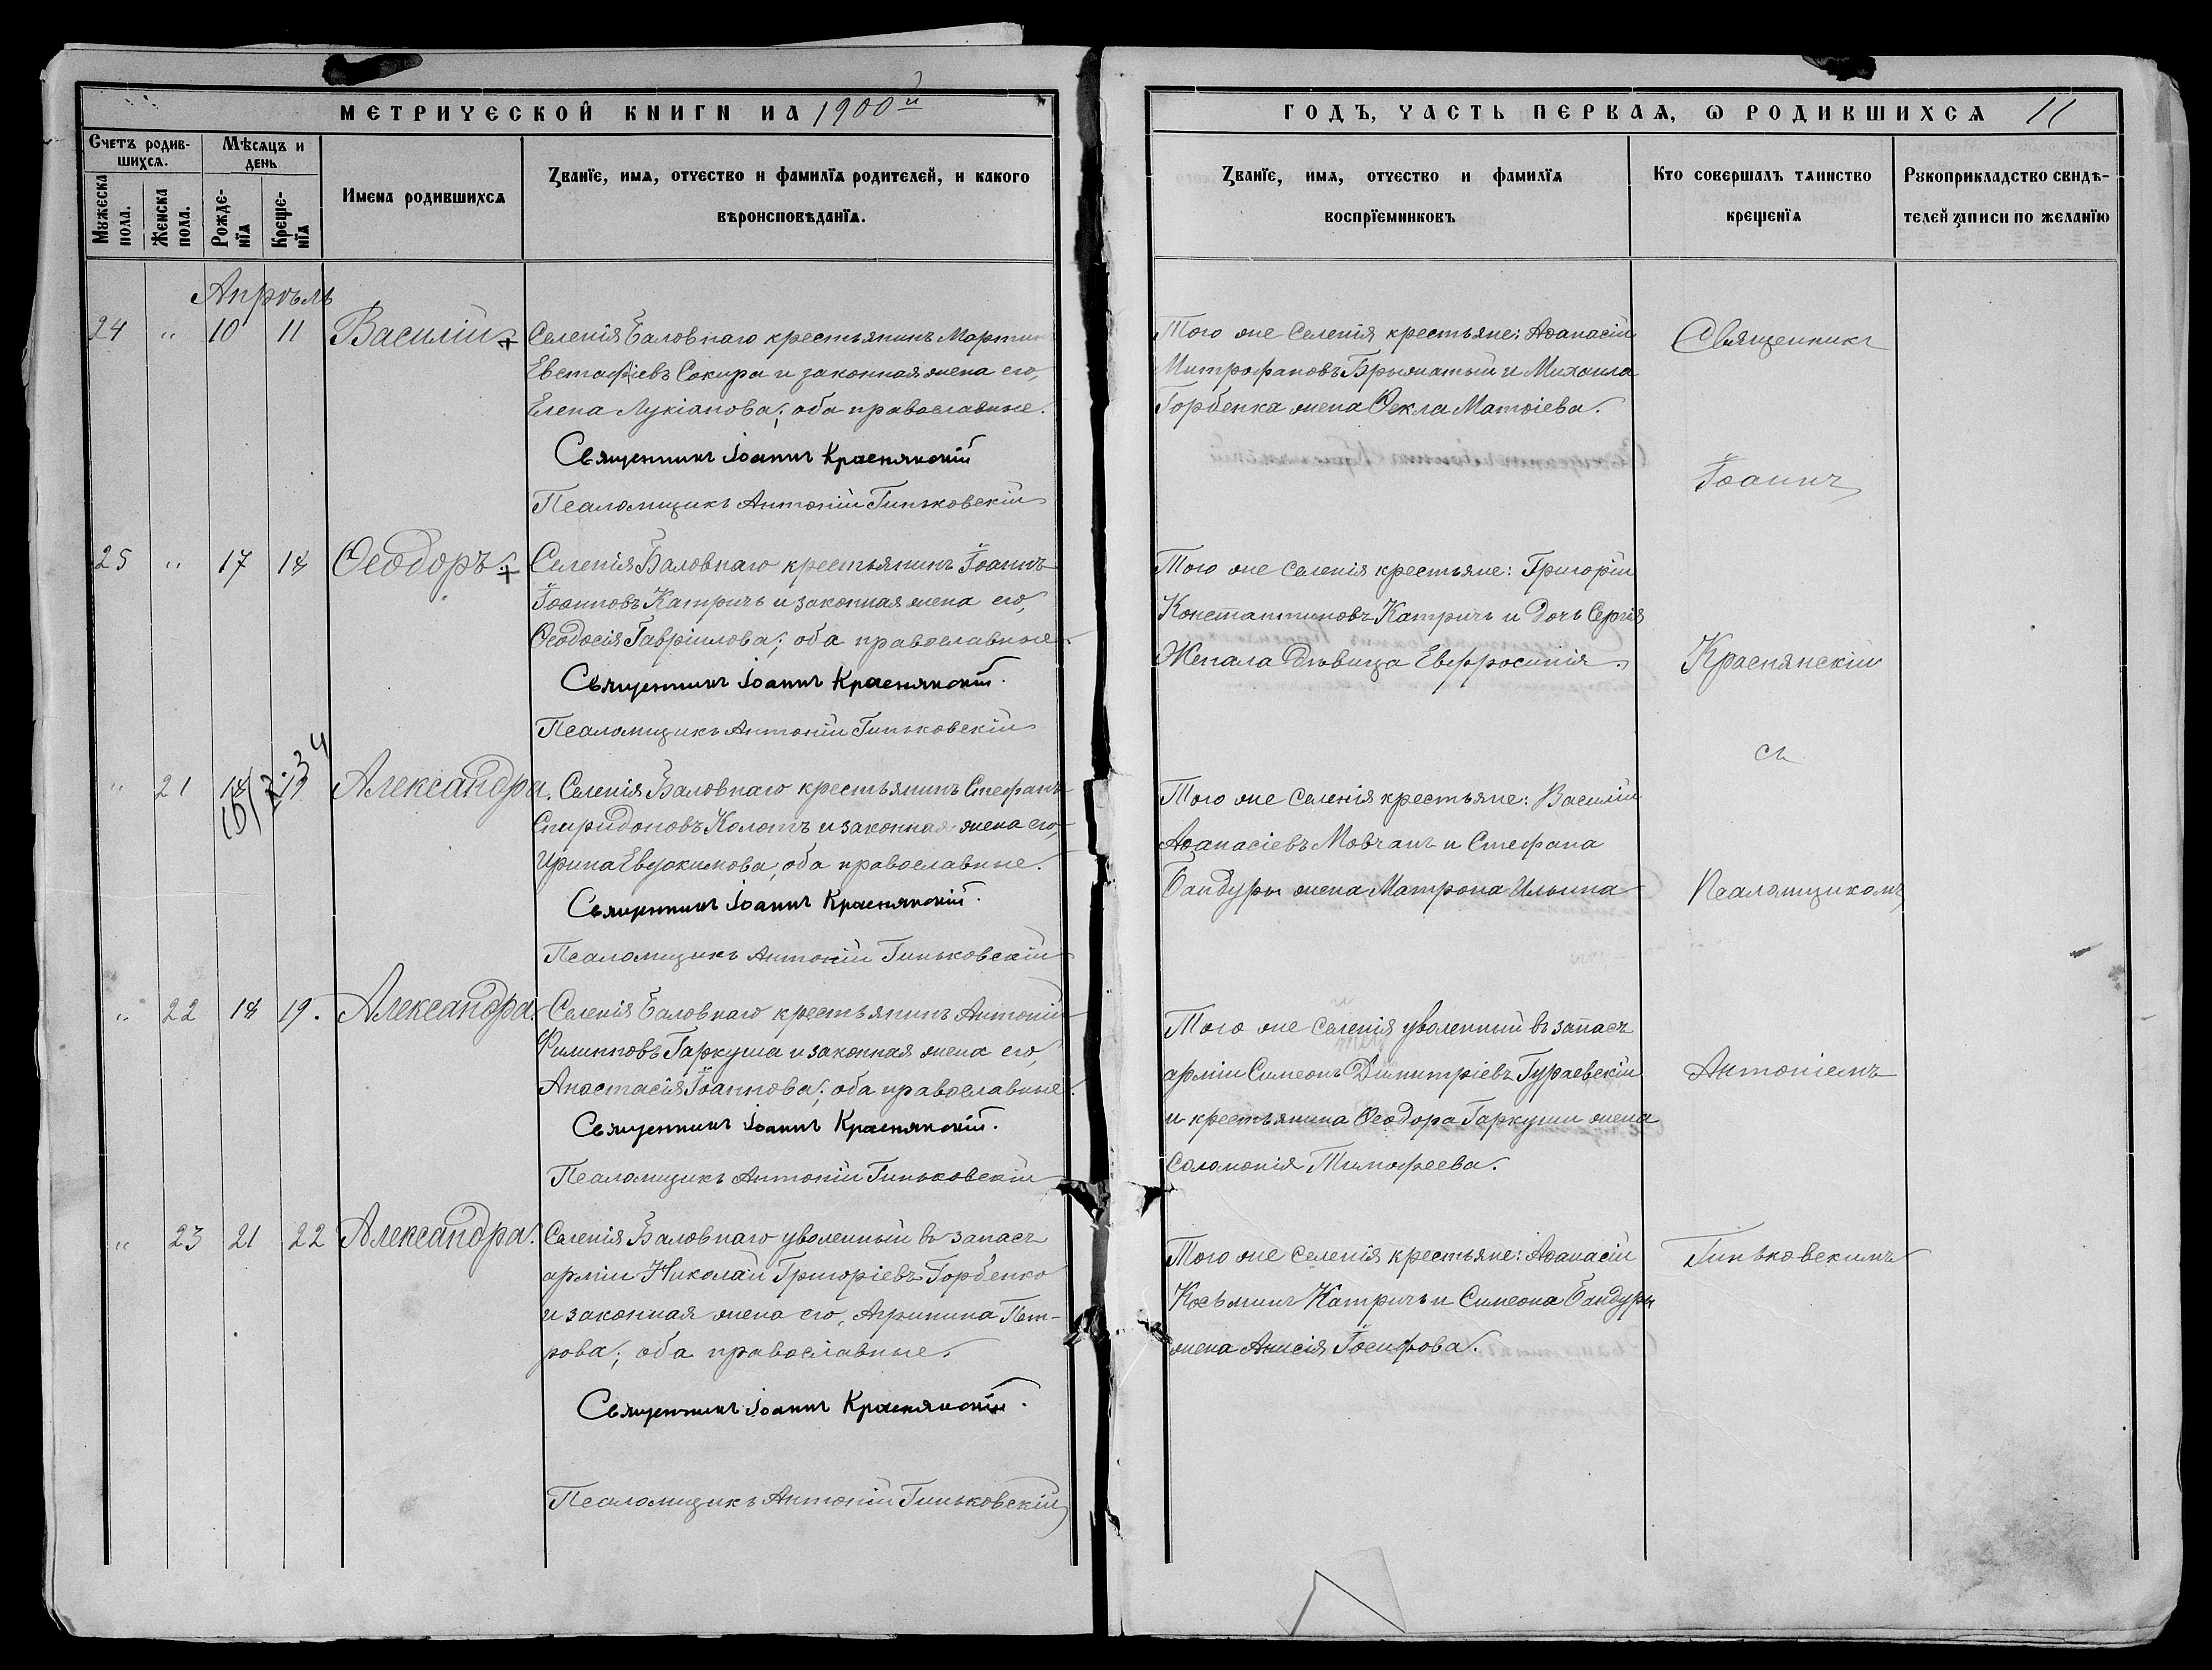 МЕТРИЧЕСКОЙ КНИГИ НА 1900й
Счетъ родившихся.
Мѣсяцъ и день
Мужеска пола.
Женска пола.
Рожденїя
Крещенїя
Имена родившихся
Званїе, имя, отчество и фамилїя родителей, и какого
вѣроисповѣданїя.
Апрѣль
24 " 10 11 Василій + Селенія Баловнаго крестьянинъ Мартин
Евстафіевъ Сокира и законная жена его,
Елена Лукіанова; оба православные.
Священникъ Іоаннъ Краснянскій
Псаломщикъ Антоній Гиньковскій
25 " 17 18 Ѳеодоръ. + Селенія Баловнаго крестьянинъ Іоаннъ
Іоанновъ Катричъ и законная жена его,
Ѳеодосія Гавріилова; оба православные.
Священникъ Іоаннъ Краснянскій.
Псаломщикъ Антоній Гиньковскій
" 21 18 19 Александра. Селенія Баловнаго крестьянинъ Стефанъ
Спиридоновъ Колотъ и законная жена его,
Ирина Евдокимова, оба православные.
Священникъ Іоаннъ Краснянскій.
Псаломщикъ Антоній Гиньковскій
" 22 18 19. Александра. Селенія Баловнаго крестьянинъ Антоній
Филипповъ Гаркуша и законная жена его,
Анастасія Іоаннова; оба православные.
Священникъ Іоаннъ Краснянскій.
Псаломщикъ Антоній Гиньковскій
" 23 21 22 Александра. Селенія Баловнаго уволенный въ запасъ
арміи Николай Григоріевъ Горбенко
и законная жена его, Агрипина Пет-
рова; оба православные.
Священникъ Іоаннъ Краснянскій.
Псаломщикъ Антоній Гиньковскій
ГОДЪ, ЧАСТЬ ПЕРВАЯ, Ѡ РОДИВШИХСЯ 11
Званїе, имя, отчество и фамилїя
воспрїемниковъ
Кто совершалъ таинство
крещенїя
Рукоприкладство свидѣ-
телей записи по желанїю
Того же селенія крестьяне: Аѳанасій
Митрофановъ Брыжатый и Михаила
Горбенка жена Ѳекла Матѳіева.
Того же селенія крестьяне: Григорій
Константиновъ Катричъ и дочь Сергія
Жепала дѣвица Евфросинія.
Того же селенія крестьяне: Василій
Аѳанасіевъ Мовчанъ и Стефана
Бандуры жена Матрона Ильина
Того же селенія уволенный въ запасъ
арміи Симеонъ Димитріевъ Гураевскій
и крестьянина Ѳеодора Гаркуши жена
Соломонія Тимофеева.
Того же селенія крестьяне: Аѳанасій
Косьминъ Катричъ и Симеона Бандуры
жена Анисія Іосифова.
Священникъ
Іоаннъ
Краснянскій
съ
Псаломщикомъ
Антоніемъ
Гиньковскимъ